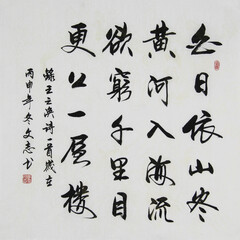 白日依山尽
黄河入海流
欲窮千里目
更上一层樓
錄王之渙诗一首歲在
丙申年冬文志书